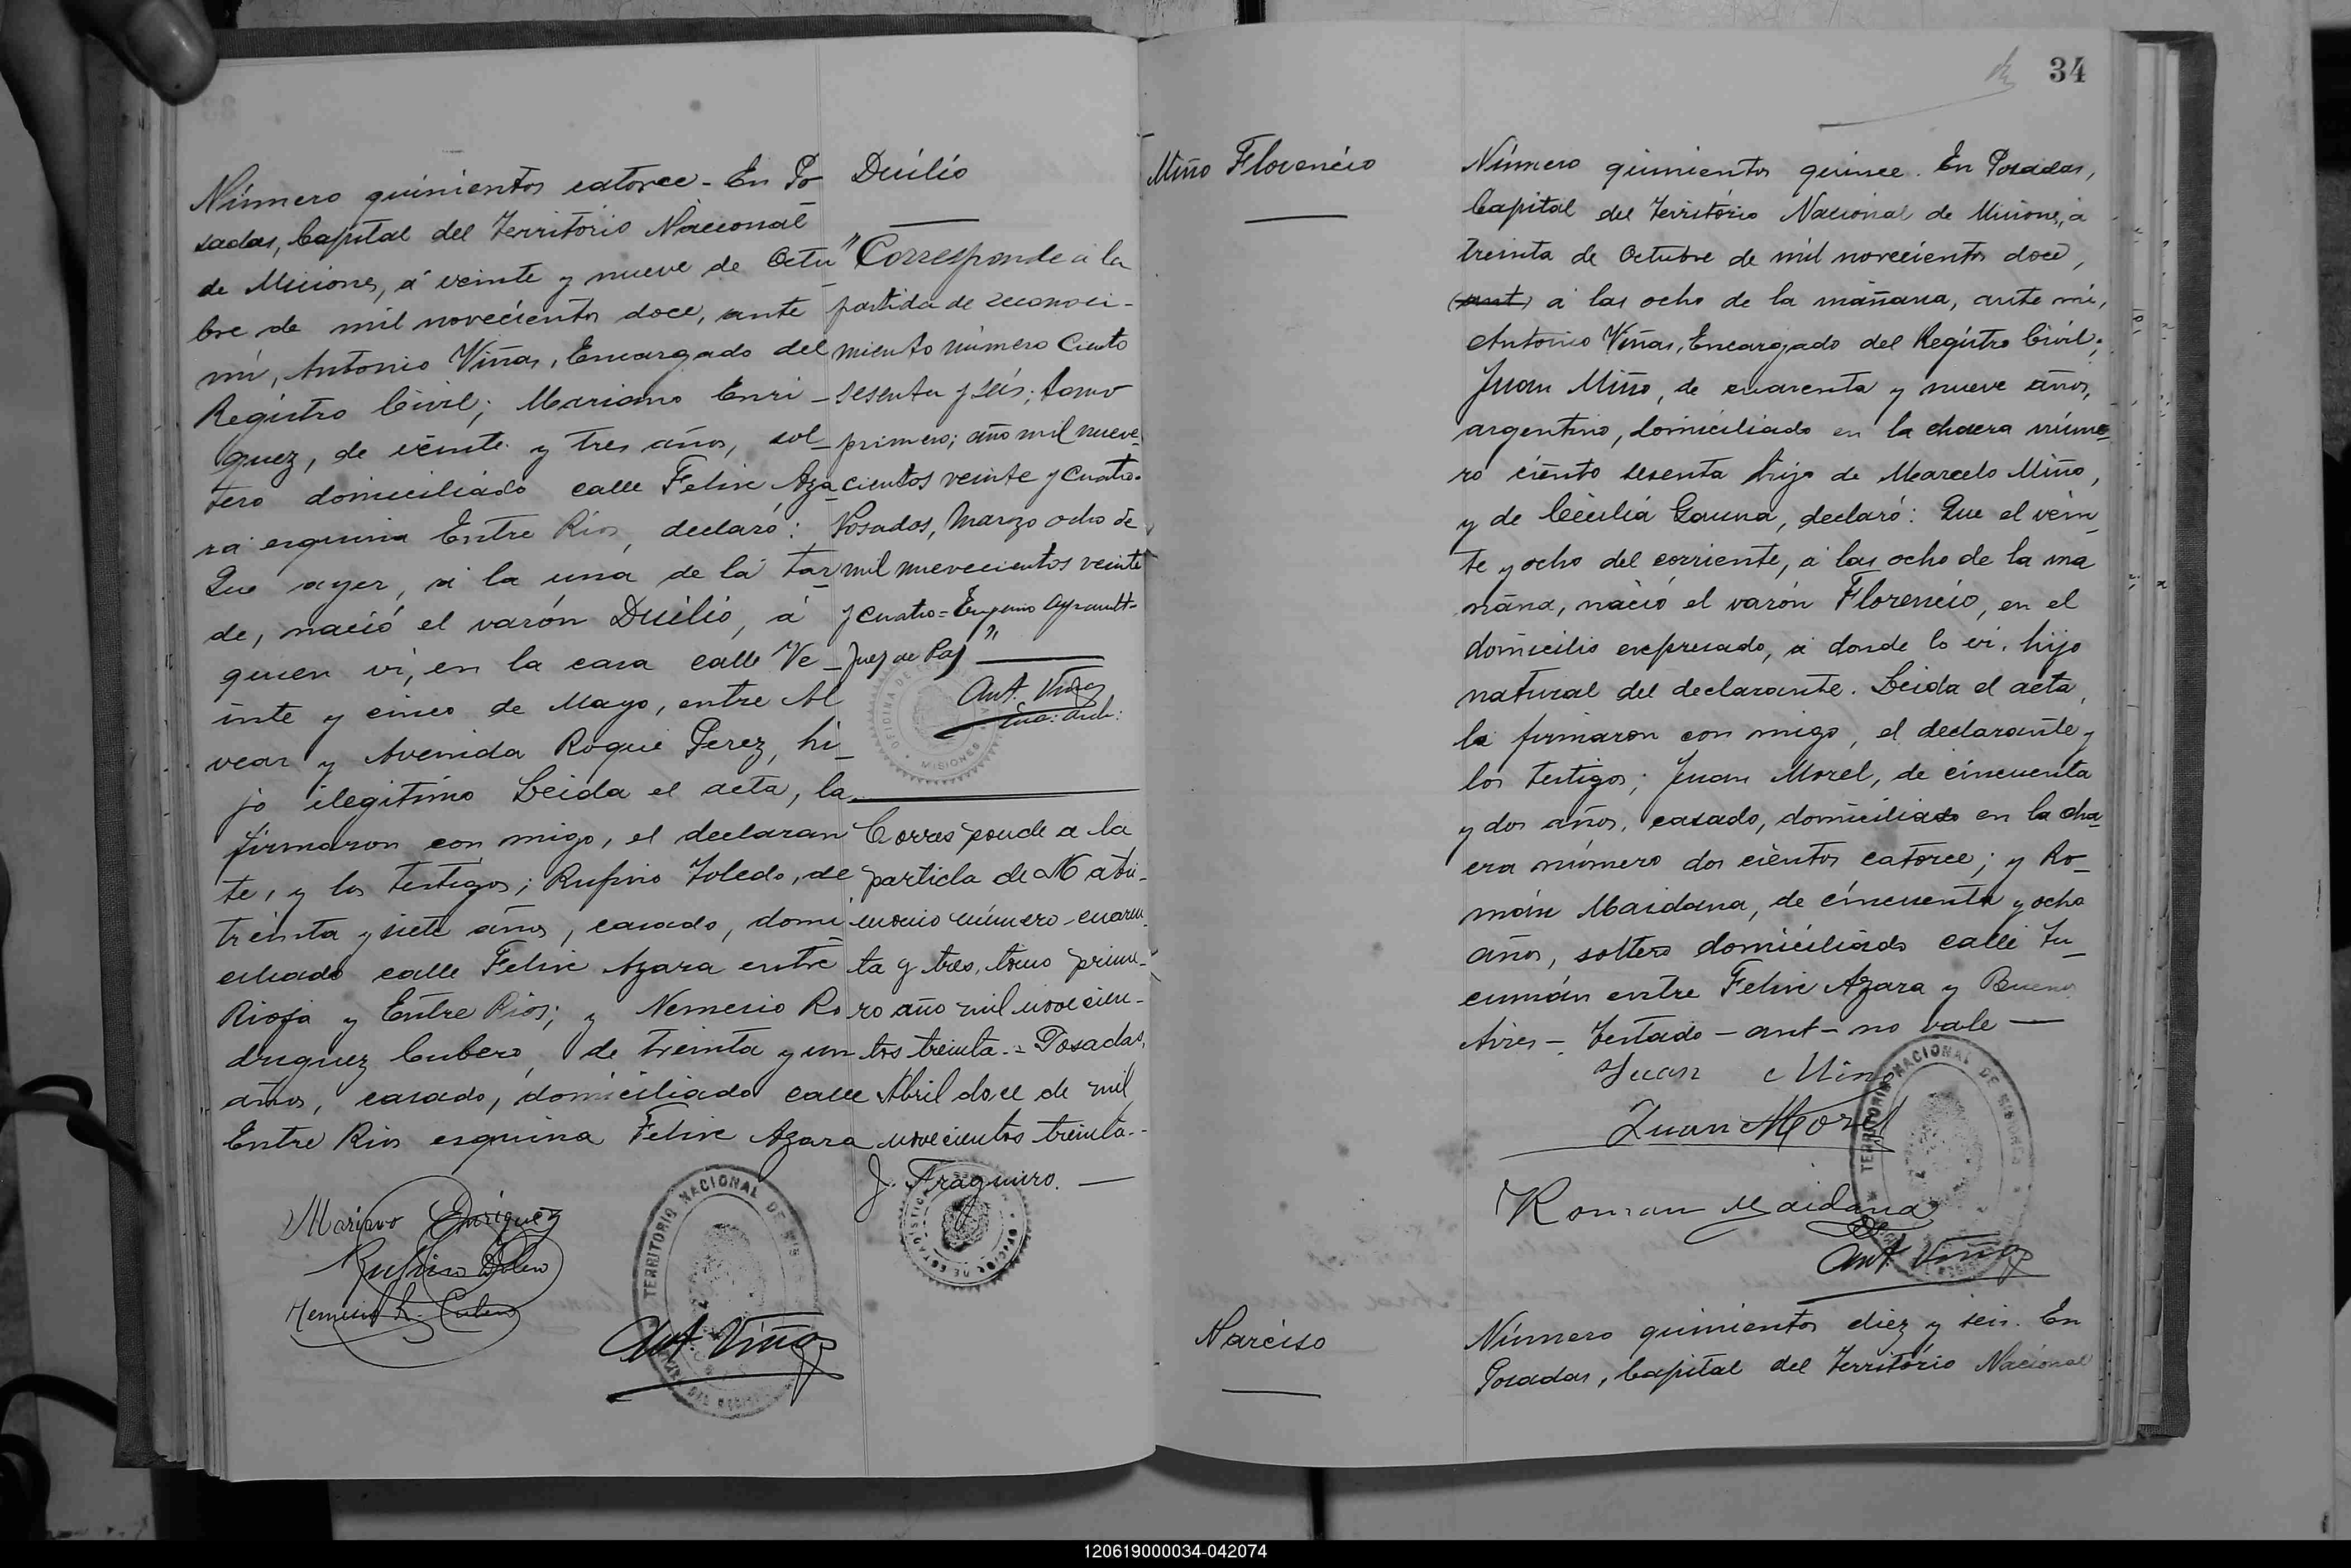 Número quinientos catorce - En Po
sadas, Capital del Territorio Nacional
de Misiones, á veinte y nueve de Octu
bre de mil novecientos doce, ante
mi, Antonio Viñas, Encargado del
Registro Civil; Mariano Enri
quez, de veinte y tres años, sol
tero domiciliado calle Felix Aza
ra esquina Entre Rios, declaró:
Que ayer, á la una de la tar
de, nació el varón Duilio, á
quien vi, en la casa calle Ve
inte y cinco de Mayo, entre Al
vear y Avenida Roque Perez, hi
jo ilegitimo Leida el acta, la
firmaron con migo, el declaran
te, y los testigos; Rufino Toledo, de
treinta y siete años, casado, domi
ciliado calle Felix Azara entre
Rioja y Entre Rios; y Nemesio Ro
driguez Cubero, de treinta y un
años, casado, domiciliado calle
Entre Rios esquina Felix Azara
Mariano Enriquez
Rufino Toledo
Nemesio R. Cubero
TERRITORIO NACIONAL DE MIS
Ant. Viñas
Duilio
"Corresponde a la
partida de reconoci-
miento número Ciento
sesenta y seis; tomo
primero; año mil nueve
cientos veinte y cuatro.
Posadas, Marzo ocho de
mil nuevecientos veinte
y cuatro = Eugenio
Juez de Paz"
OFICINA DE
MISIONES
Ant. Viñas
Corresponde a la
partida de Matri-
monio número cuaren
ta y tres, tomo prime-
ro año mil novecien-
tos treinta.- Posadas,
Abril doce de mil
novecientos treinta.-
J. Fraguiro.
34
Miño Florencio
Número quinientos quince. En Posadas,
Capital del Territorio Nacional de Misiones, á
treinta de Octubre de mil novecientos doce,
(ant) á las ocho de la mañana, ante mi,
Antonio Viñas, Encargado del Registro Civil;
Juan Miño, de cuarenta y nueve años,
argentino, domiciliado en la chacra núme
ro ciento sesenta hijo de Marcelo Miño,
y de Cecilia Gauna, declaró: Que el vein
te y ocho del corriente, á las ocho de la ma
ñana, nació el varón Florencio, en el
domicilio expresado, á donde lo vi, hijo
natural del declarante. Leida el acta,
la firmaron con migo, el declarante y
los testigos; Juan Morel, de cincuenta
y dos años, casado, domiciliado en la cha
cra número dos cientos catorce; y Ro
mán Maidana, de cincuenta y ocho
años, soltero domiciliado calle Tu
cumán entre Felix Azara y Buenos
Aires - Testado - ant - no vale -
Juan Miño
Juan Morel
Roman Maidana
TERRITORIO NACIONAL DE MISIONES
Ant. Viñas
Narciso
Número quinientos diez y seis. En
Posadas, Capital del Territorio Nacional
120619000034-042074